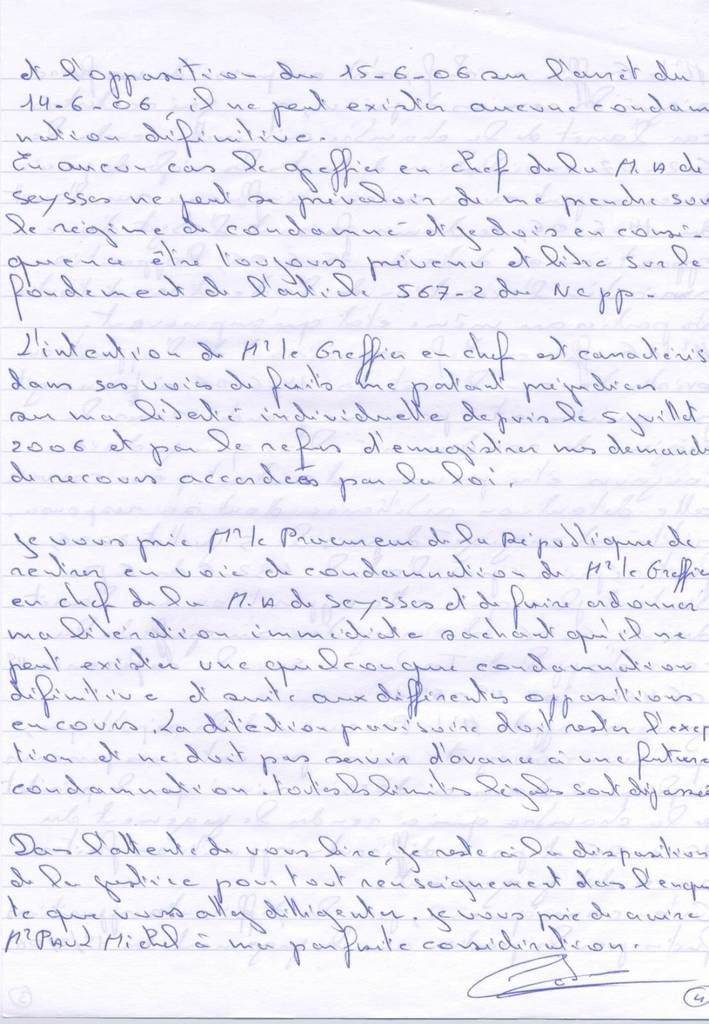 et l'opposition du 15-6-06 sur l'arret du
14-6-06, il ne peut exister aucune condam
nation difinitive.
En aucun cas le greffier en chef de la M.A de
Seysses ne peut se prévaloir de me prendre sur
le régime de condamné et je dois en consé-
quence être toujours prévenu et libre sur le
fondement de l'article 567-2 du Ncpp.
L'intention de Mr le Greffier en chef est caractéris
dans ses voies de faits me portant préjudices
sur ma liberté individuelle depuis le 5 juillet
2006 et par le refus d'enregistrer mes demande
de recours accordées par la loi.
Je vous prie Mr le Procureur de la République de
rentrer en voie de condamnation de Mr le Greffie
en chef de la M.A de Seysses et de faire ordonner
ma libération immédiate sachant qu'il ne
peut exister une quelconque condamnation
difinitive et suite aux différentes oppositions
en cours. La détention provisoire doit rester l'excep
tion et ne doit pas servir d'avance à une future
condamnation. toutes les limites légales sont dépassé
Dans l'attente de vous lire, je reste à la disposition
de la justice pour tout renseignement dans l'enque
te que vous allez dilligenter. Je vous prie de croire
Mr PAUL Michel à ma parfaite considération.
4